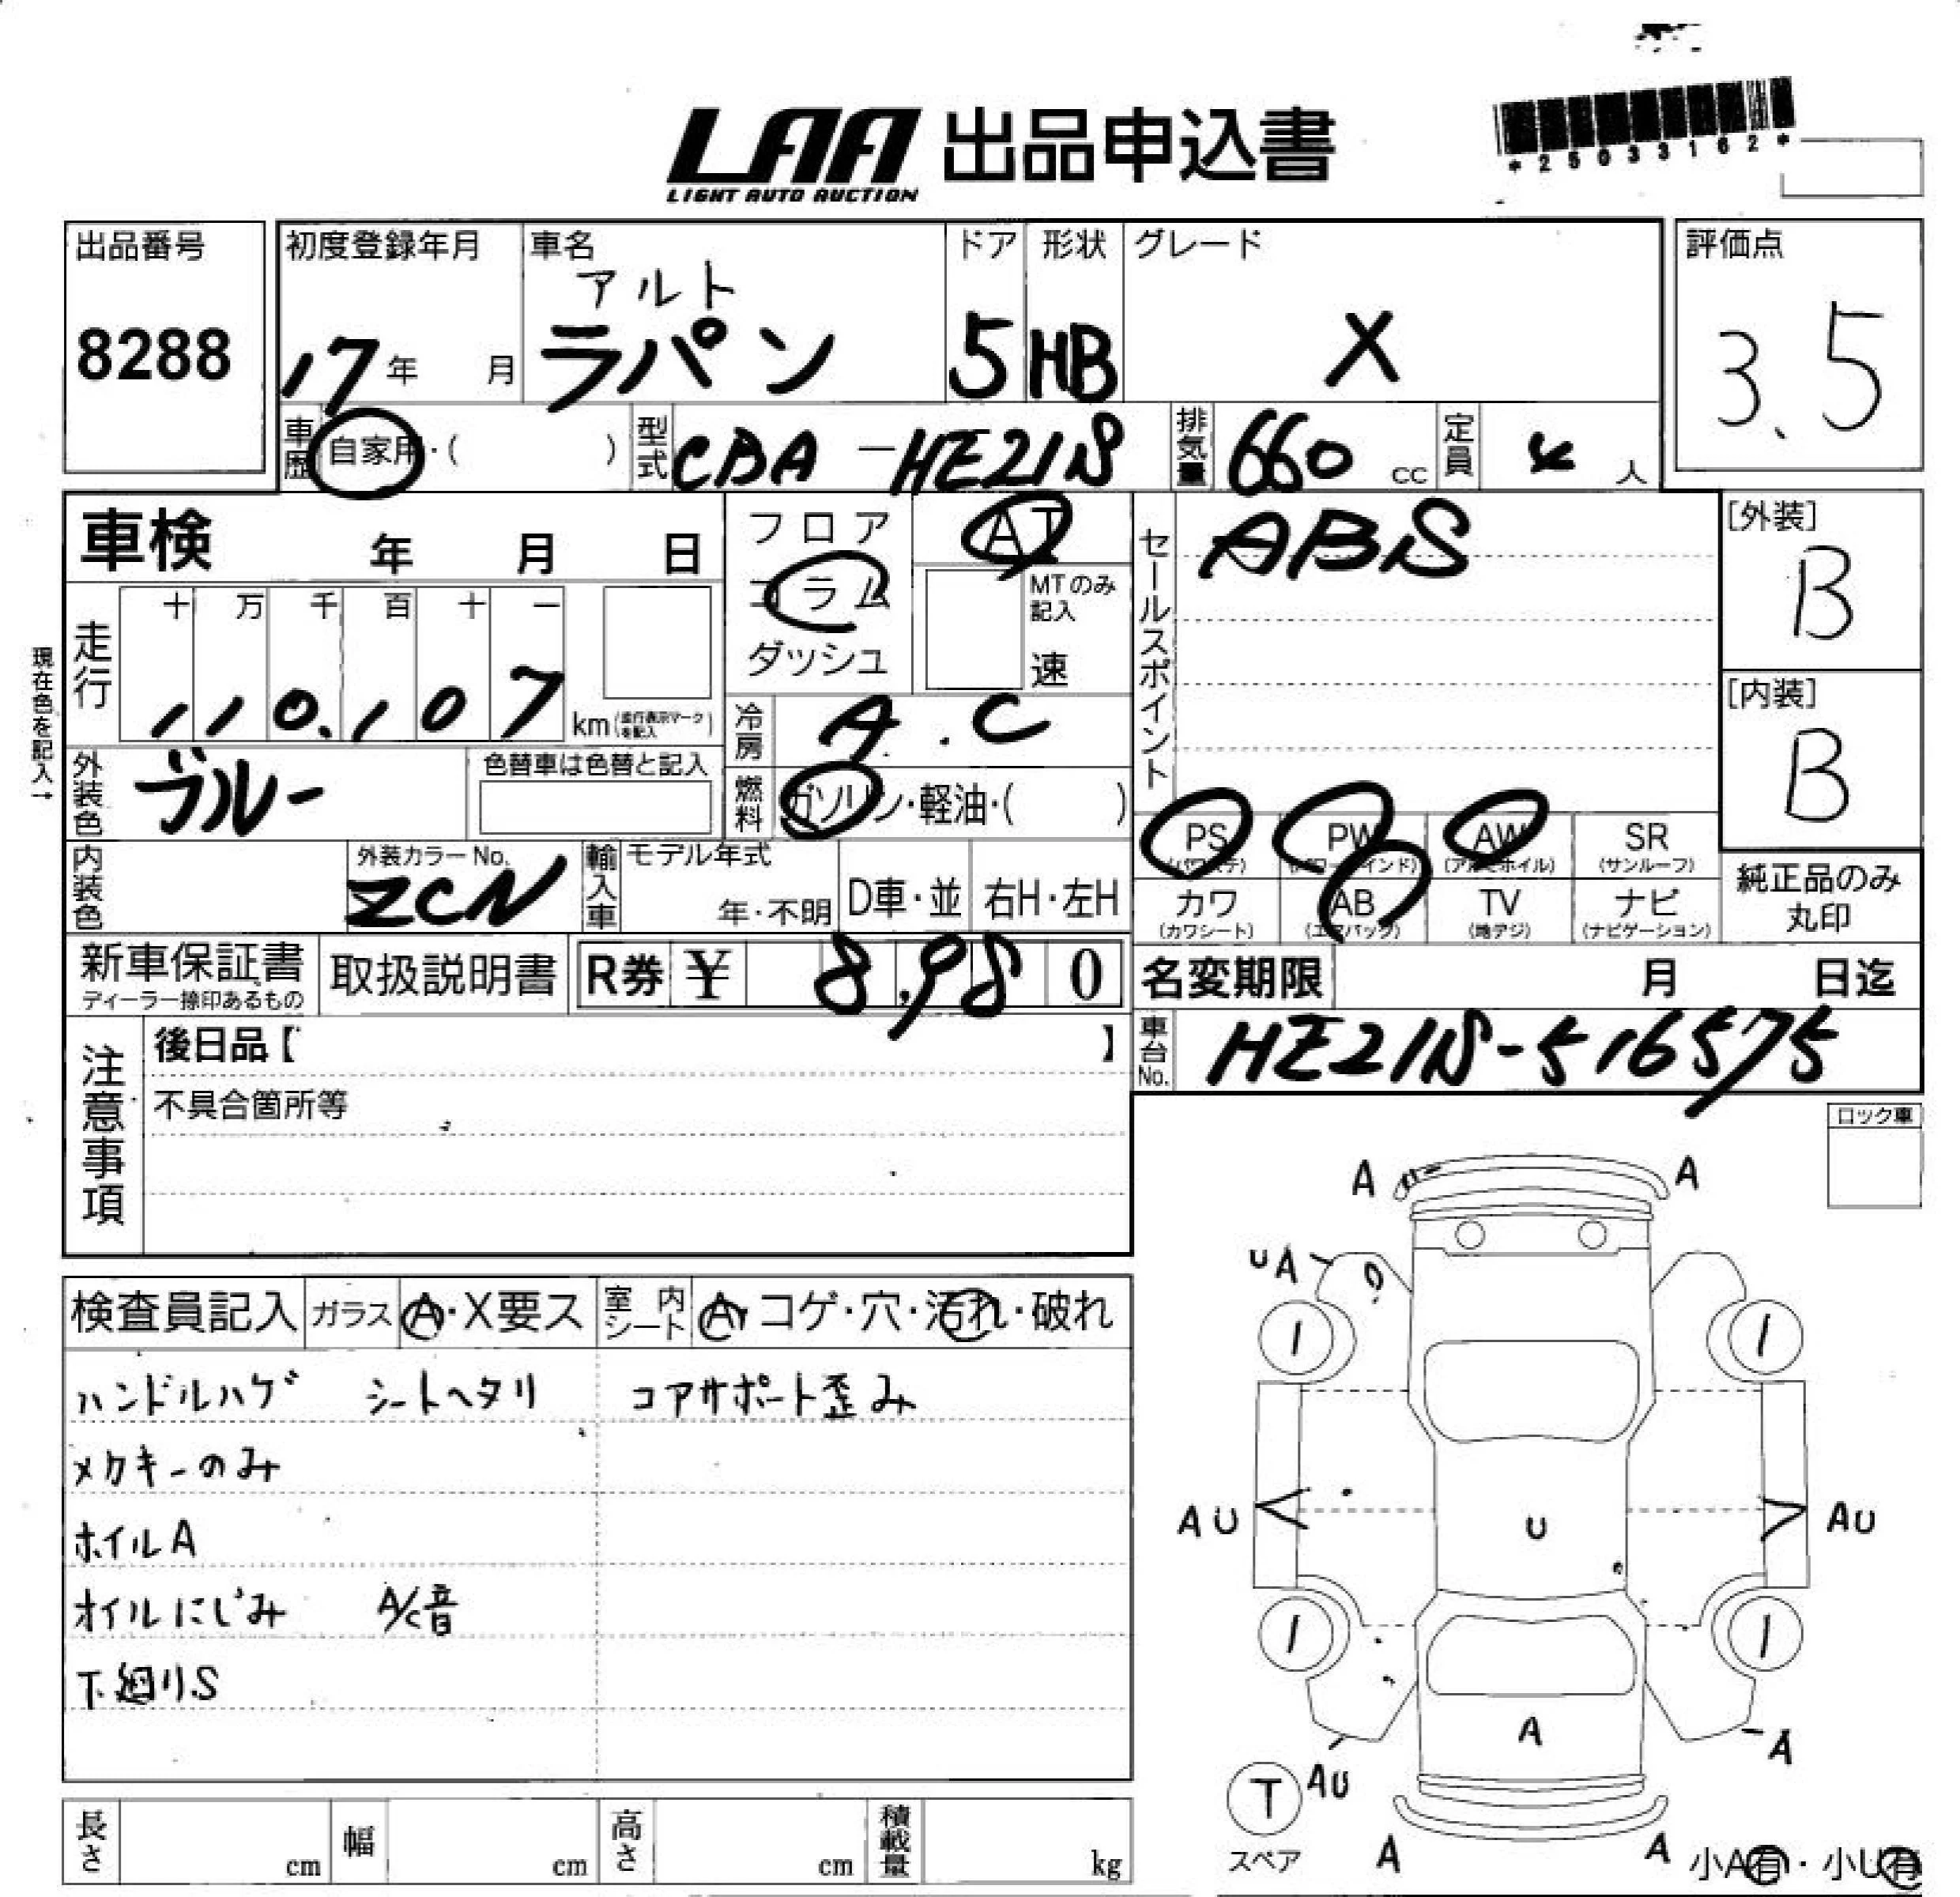 LAA 出品申込書
LIGHT AUTO AUCTION
*25033162*
出品番号
8288
初度登録年月
17年 月
車名
アルト
ラパン
ドア
5
形状
HB
グレード
X
評価点
3.5
車歴 自家用・( )
型式 CBA-HE21S
排気量 660 cc
定員 4 人
車検 年 月 日
フロア
コラム
ダッシュ
AT
MTのみ記入
速
セールスポイント
ABS
[外装]
B
[内装]
B
現在色を記入→
走行
十 万 千 百 十 一
110,107 km (走行表示マークを記入)
冷房 A.C
燃料 ガソリン・軽油・( )
外装色 ブルー
色替車は色替と記入
内装色
外装カラーNo.
ZCN
輸入車
モデル年式
年・不明
D車・並
右H・左H
PS (パワステ)
PW (パワーウインド)
AW (アルミホイル)
SR (サンルーフ)
カワ (カワシート)
AB (エアバッグ)
TV (地デジ)
ナビ (ナビゲーション)
純正品のみ
丸印
新車保証書
ディーラー捺印あるもの
取扱説明書
R券 ¥ 8,980
名変期限 月 日迄
車台No. HE21S-516575
注意事項
後日品【 】
不具合箇所等
ロック車
検査員記入
ガラス A・X要ス
室内シート A・コゲ・穴・汚れ・破れ
ハンドルハゲ シートヘタリ コアサポート歪み
メカキーのみ
ホイルA
オイルにじみ A/C音
下廻りS
A A
UA
1 1
AU U AU
1 1
A
AU A
T
スペア
A A
小A有・小U有
長さ cm
幅 cm
高さ cm
積載量 kg